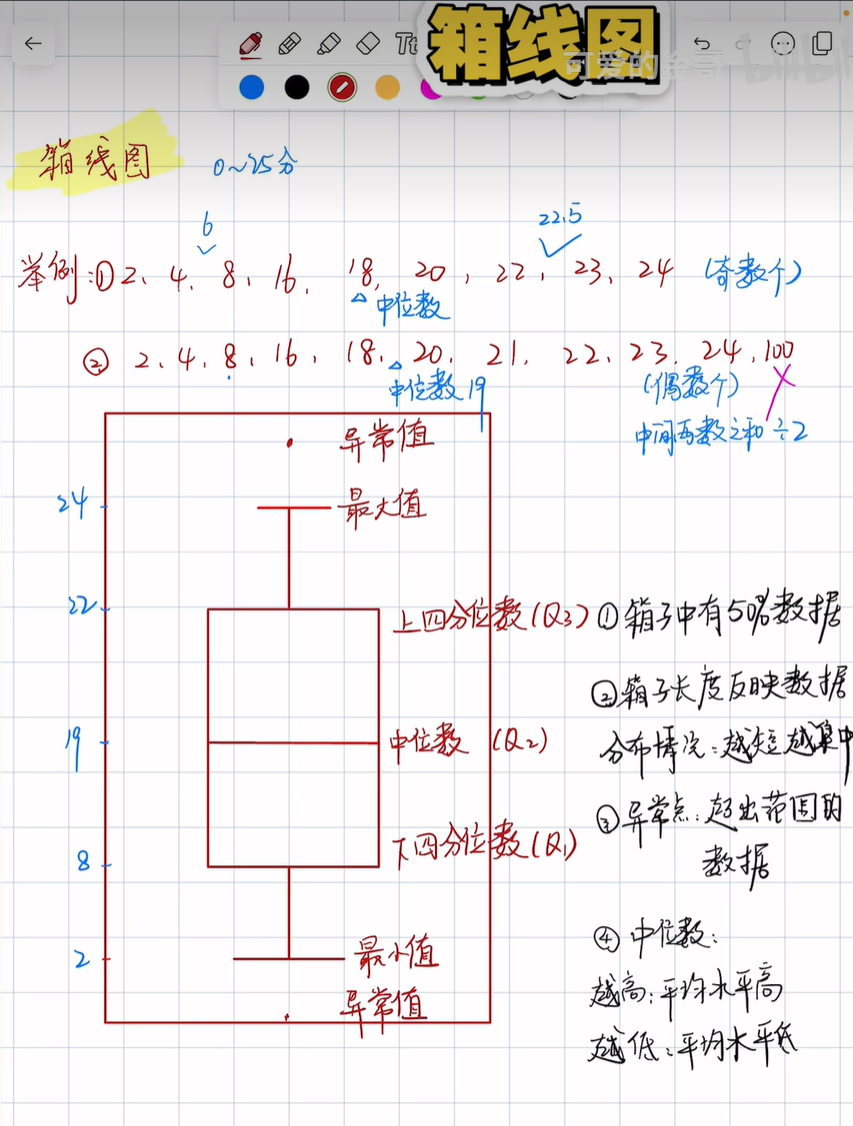 箱线图
可爱的
bilibili
Tt
箱线图 0~25分
6 22.5
举例:① 2、4、8、16、18、20、22、23、24 (奇数个)
中位数
② 2、4、8、16、18、20、21、22、23、24、100
中位数19 (偶数个)
中间两数之和÷2
异常值
24 最大值
22 上四分位数(Q3)
19 中位数 (Q2)
8 下四分位数(Q1)
2 最小值
异常值
①箱子中有50%数据
②箱子长度反映数据
分布情况:越短越集中
③异常点:超出范围的
数据
④中位数:
越高:平均水平高
越低:平均水平低